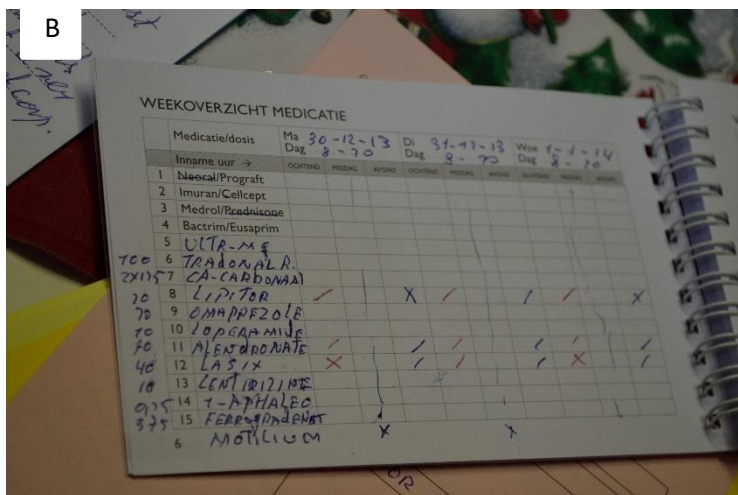 B
WEEKOVERZICHT MEDICATIE
Medicatie/dosis Ma 30-12-13 Di 31-12-13 Woe 1-1-14
Dag 8-20 Dag 8-20 Dag 8-20
Inname uur → OCHTEND MIDDAG AVOND OCHTEND MIDDAG AVOND OCHTEND MIDDAG AVOND
1 Neocal/Prograft
2 Imuran/Cellcept
3 Medrol/Prednisone
4 Bactrim/Eusaprim
5 ULTR-Mg
100 6 TRADONAL R.
7 CA-CARBONAAT
8 LIPITOR X X
9 OMAPREZOLE
10 10 LOPERAMIDE
11 ALENDRONATE
40 12 LASIX X X
10 13
0,25 14
375 15
6 MOTILIUM X X
OR